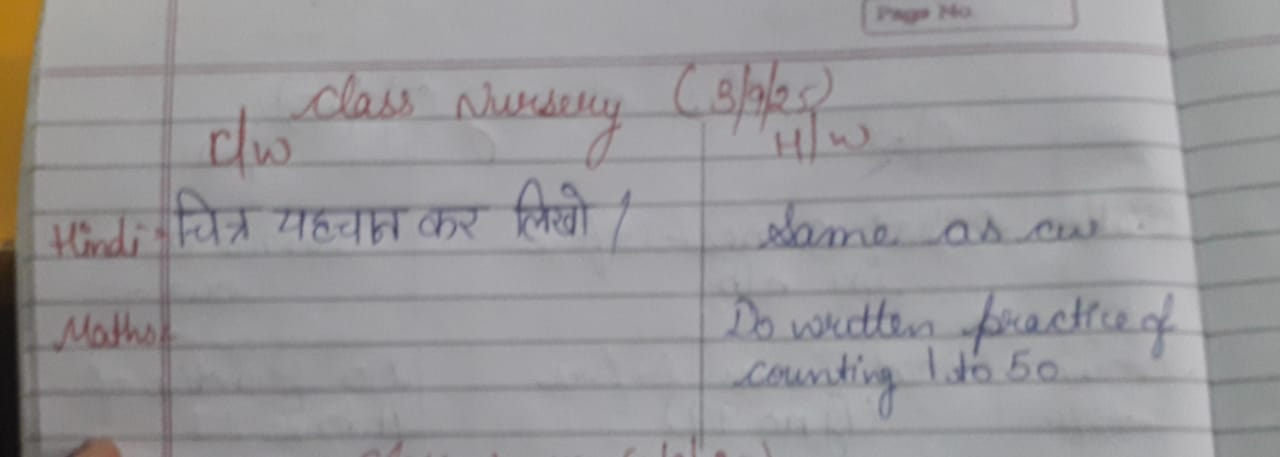 Page No.
Class Nursery (3/9/25)
C/W H/W
Hindi: चित्र पहचान कर लिखो / Same as cw.
Maths: Do written practice of
counting 1 to 50